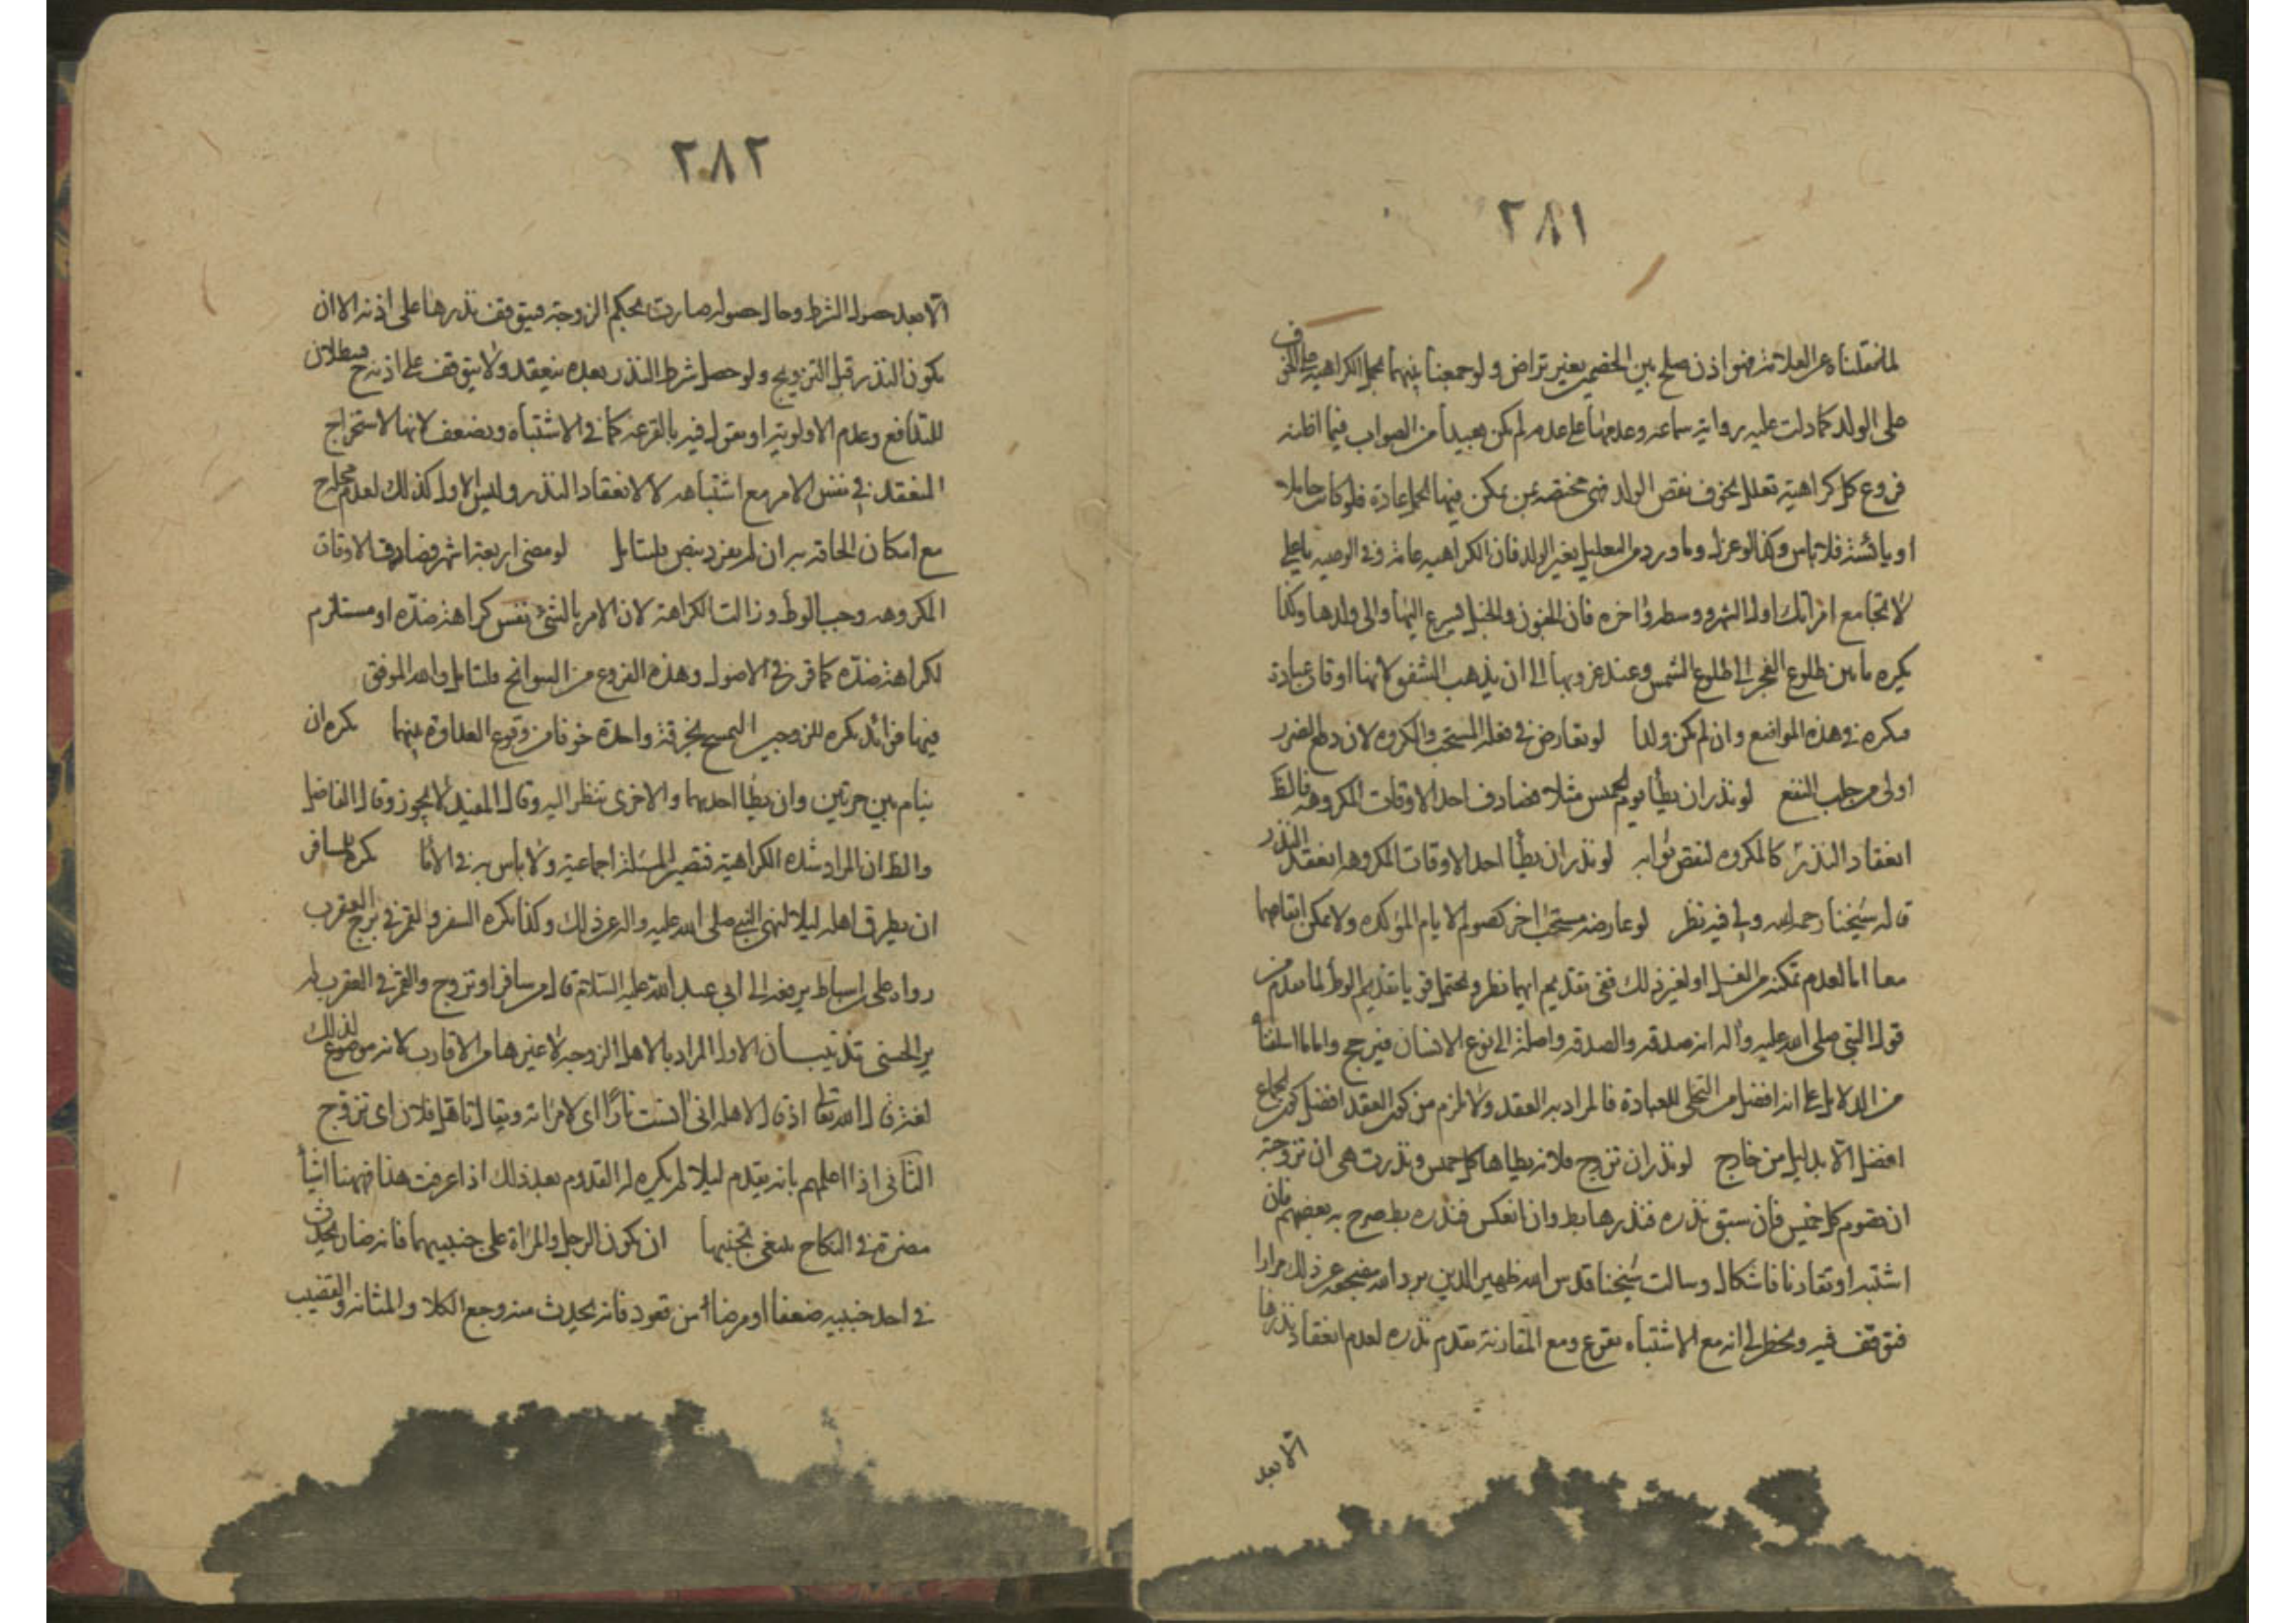 ٢٨١
لما نقلناه عن العلامة فهو اذن صلح بين الخصمين بغير تراض ولو جمعنا بينهما بحمل الكراهية على الخوف
على الولد كما دلت عليه رواية سماعه وعدمها على عدمه لم يكن بعيدا من الصواب فيما اظنه
فروع كل كراهية تعلل بخوف نقص الولد فهى مختصة بمن يمكن فيها الحمل عادة فلو كانت حاملا
او يائسة فلا باس وكذا لو عزل وما ورد من التعليل بغير الولد فان الكراهيه عامة وفى الوصيه يا على
لا تجامع امراتك اول الشهر ووسطه واخره فان الجنون والخبل يسرع اليها والى ولدها وكذا
يكره ما بين طلوع الفجر الى طلوع الشمس وعند غروبها الى ان يذهب الشفق لانها اوقات عبادة
فيكره فى هذه المواضع وان لم يكن ولدا لو تعارض فى فعله المستحب والمكروه لان دفع الضرر
اولى من جلب النفع لو نذر ان يطأ يوم الخميس مثلا فصادف احد الاوقات المكروهه فالظ
انعقاد النذر كالمكروه لنقص ثوابه لو نذر ان يطأ احد الاوقات المكروهه انعقد النذر
قاله شيخنا رحمه الله ولى فيه نظر لو عارضه مستحب اخر كصوم الايام المؤكده ولا يمكن ايقاعهما
معا اما لعدم تمكنه من الغسل او لغير ذلك ففى تقديم ايهما نظر ويحتمل قويا تقديم الوطؤ لما تقدم من
قول النبى صلى الله عليه واله انه صدقه والصدقه واصلة الى نوع الانسان فيرجح واما ما اسلفنا
من الدلايل على انه افضل من التخلى للعبادة فالمراد به العقد ولا يلزم من كون العقد افضل كون الجماع
افضل الا بدليل من خارج لو نذر ان تزوج فلانه يطاها كل خميس ونذرت هى ان تزوجته
ان تصوم كل خميس فان سبق نذره فنذرها بط وان انعكس فنذره بط صرح به بعضهم فان
اشتبه او تقارنا فاشكال وسالت شيخنا قدس الله ظهير الدين برد الله مضجعه عن ذلك مرارا
فتوقف فيه ويخطر لى انه مع الاشتباه يقرع ومع المقارنة يقدم نذره لعدم انعقاد نذرها
الا بعد
٢٨٢
الا بعد حصول الشرط وحال حصوله صارت بحكم الزوجة فيتوقف نذرها على اذنه الا ان
يكون النذر قبل التزويج ولو حصل شرط النذر بعده ينعقد ولا يتوقف على اذنه ح فيبطلان
للتدافع وعدم الاولوية او يقول فيه بالقرعة كما فى الاشتباه ويضعف لانها لاستخراج
المنعقد فى نفس الامر مع اشتباهه لا لانعقاد النذر وليس الاول كذلك لعدم
مع امكان الحاقه به ان لم يفرد بنص فليتامل لو مضى اربعة اشهر فصادف الاوقات
المكروهه وجب الوطؤ وزالت الكراهة لان الامر بالشئ نفس كراهة ضده او مستلزم
لكراهة ضده كما قرر فى الاصول وهذه الفروع من السوانح فليتامل والله الموفق
فيها فوائد يكره للزوجين التمسح بخرقة واحدة خوفا من وقوع العداوة بينهما يكره ان
ينام بين حرتين وان يطأ احديهما والاخرى تنظر اليه وقال المفيد لا يجوز وقال الفاضل
والظ ان المراد شدة الكراهية فتصير المسئلة اجماعية ولا باس به فى الاما يكره للمسافر
ان يطرق اهله ليلا لنهى النبى صلى الله عليه واله عن ذلك وكذا يكره السفر والقمر فى برج العقرب
رواه على بن اسباط يرفعه الى ابى عبد الله عليه السلام قال من سافر او تزوج والقمر فى العقرب لم
ير الحسنى تذنيبان الاول المراد بالاهل الزوجه لا غيرها من الاقارب لانه موضوع لذلك
لغة قال الله تعالى اذ قال لاهله انى انست نارا اى لامراته ويقال تاهل فلان اى تزوج
الثانى اذا اعلمهم بانه يقدم ليلا لم يكره له القدوم بعد ذلك اذا عرفت هذا فهنا اشياء
مضرة فى النكاح ينبغى تجنبها ان يكون الرجل والمراة على جنبيهما فانه ضار يحدث
فى احد جنبيه ضعفا او مرضا من قعود فانه يحدث منه وجع الكلا والمثانه والقضيب